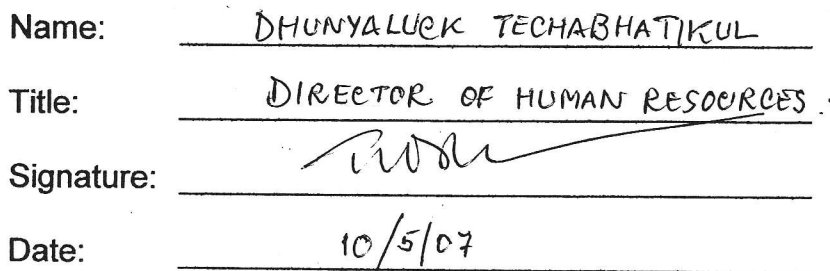 Name: DHUNYALUCK TECHABHATIKUL
Title: DIRECTOR OF HUMAN RESOURCES.
Signature:
Date: 10/5/07